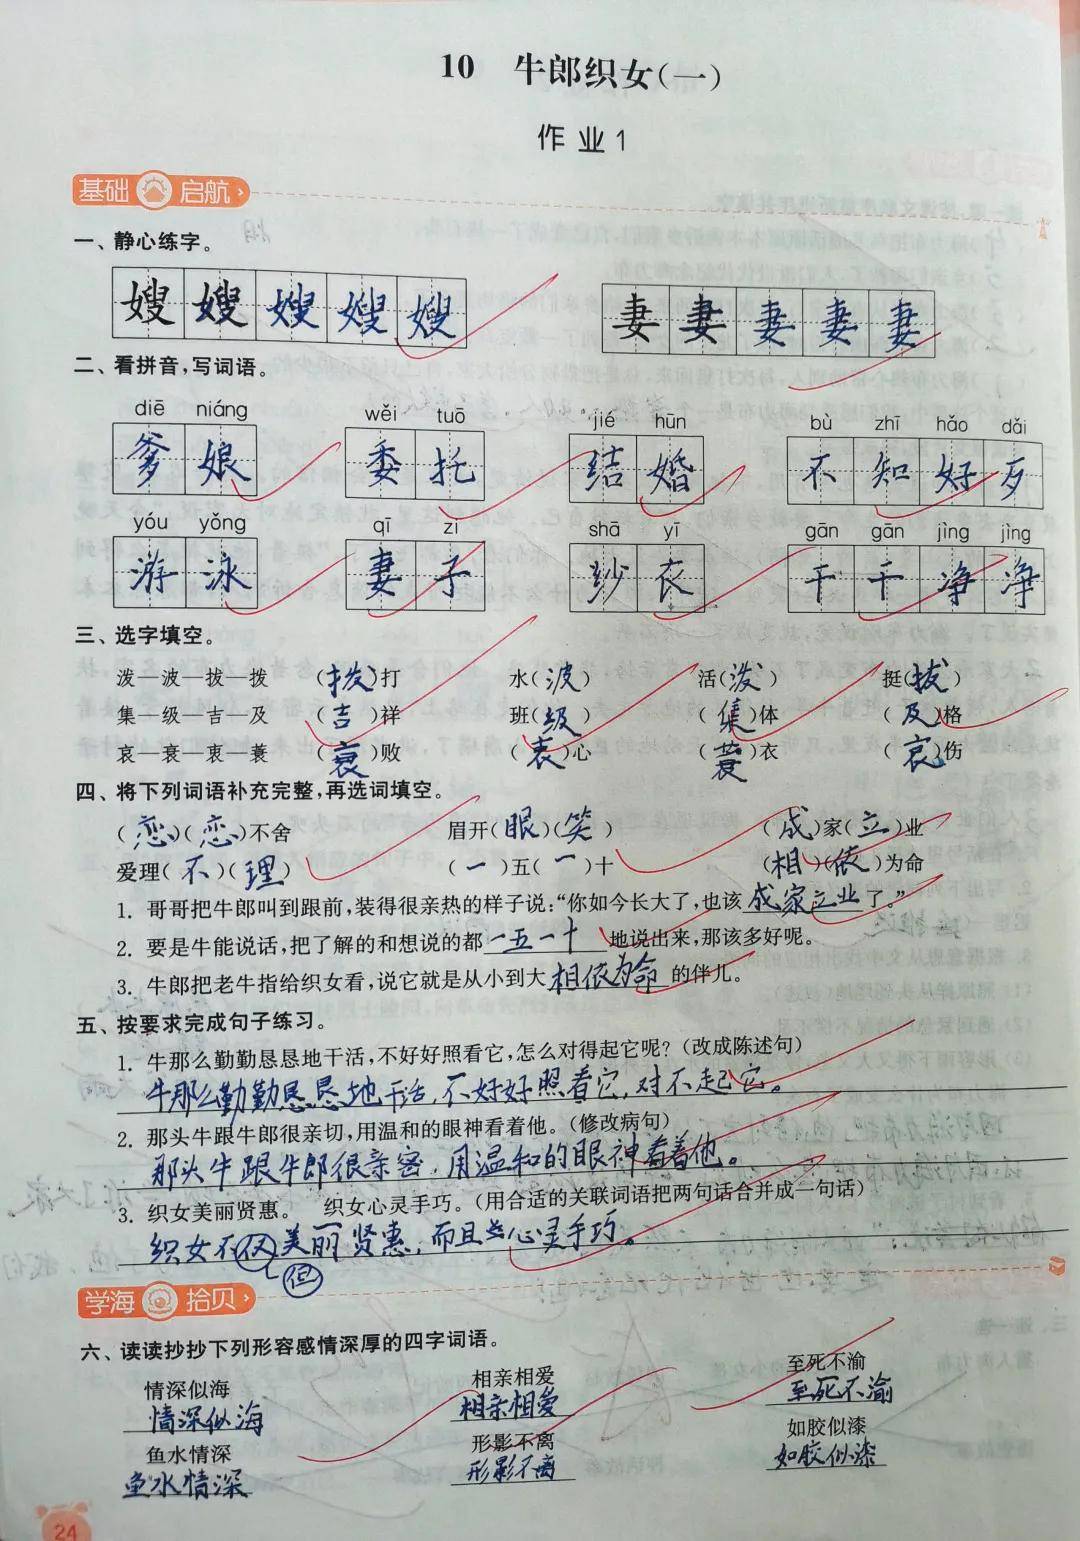 10 牛郎织女(一)
作业1
基础 启航
一、静心练字。
嫂嫂嫂嫂嫂 妻妻妻妻妻
二、看拼音,写词语。
diē niáng wěi tuō jié hūn bù zhī hǎo dǎi
爹娘 委托 结婚 不知好歹
yóu yǒng qī zi shā yī gān gān jìng jìng
游泳 妻子 纱衣 干干净净
三、选字填空。
泼—波—拔—拨 (拨)打 水(波) 活(泼) 挺(拔)
集—级—吉—及 (吉)祥 班(级) (集)体 (及)格
哀—衰—衷—蓑 (衰)败 (衷)心 (蓑)衣 (哀)伤
四、将下列词语补充完整,再选词填空。
(恋)(恋)不舍 眉开(眼)(笑) (成)家(立)业
爱理(不)(理) (一)五(一)十 (相)(依)为命
1. 哥哥把牛郎叫到跟前,装得很亲热的样子说:“你如今长大了,也该成家立业了。”
2. 要是牛能说话,把了解的和想说的都一五一十地说出来,那该多好呢。
3. 牛郎把老牛指给织女看,说它就是从小到大相依为命的伴儿。
五、按要求完成句子练习。
1. 牛那么勤勤恳恳地干活,不好好照看它,怎么对得起它呢?(改成陈述句)
牛那么勤勤恳恳地干活,不好好照看它,对不起它。
2. 那头牛跟牛郎很亲切,用温和的眼神看着他。(修改病句)
那头牛跟牛郎很亲密,用温和的眼神看着他。
3. 织女美丽贤惠。 织女心灵手巧。(用合适的关联词语把两句话合并成一句话)
织女不仅美丽贤惠,而且心灵手巧。
但
学海 拾贝
六、读读抄抄下列形容感情深厚的四字词语。
情深似海 相亲相爱 至死不渝
情深似海 相亲相爱 至死不渝
鱼水情深 形影不离 如胶似漆
鱼水情深 形影不离 如胶似漆
24